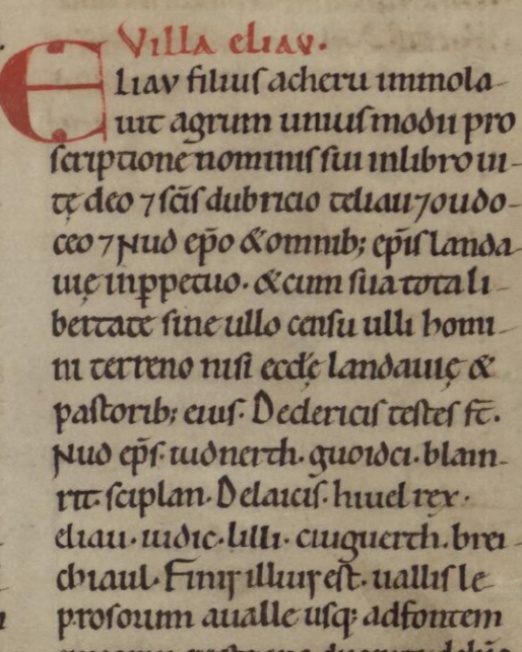 Villa eliav.
Eliav filius acheru immola-
uit agrum unius modii pro
scriptione nominis sui inlibro ui-
tę deo ⁊ scīs dubricio teliau ⁊ oudo-
ceo ⁊ Nud ep̄o & omnib; ep̄is landa-
uię inp̱petuo. & cum sua tota li-
bertate sine ullo censu ulli homi-
ni terreno nisi eccl̄ę landauię &
pastorib; eius. De clericis testes s̄t.
Nud ep̄s. iudnerth. guoidci. blain-
rit. sciplan. De laicis. huuel rex.
eliau. iudic. lilli. ciuguerth. brei-
chiaul. Finis illius est. uallis le-
prosorum aualle usq; adfontem